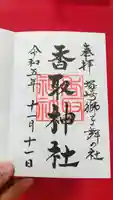 奉拝 塚崎獅子舞の社
香取神社
令和五年十二月十一日